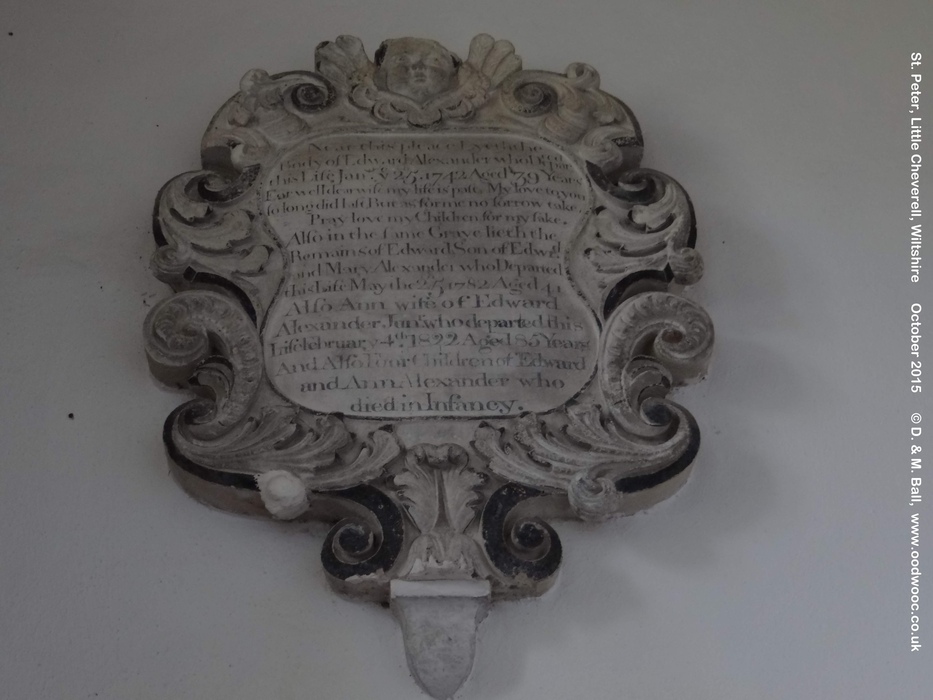 Near this pleace Lyeth the
Body of Edward Alexander who Depar
this Life Janry ye 25, 1742 Aged 39 Years
Farwell dear wife my life is past, My love to you
so long did last But as for me no sorrow take,
Pray love my Children for my sake.
Also in the same Grave lieth the
Remains of Edward Son of Edwd
and Mary Alexander who Departed
this Life May the 25 1782 Aged 41
Also Ann wife of Edward
Alexander Junr who departed this
Life February 4th 1822 Aged 85 Years
And Also Four Children of Edward
and Ann Alexander who
died in Infancy.
St. Peter, Little Cheverell, Wiltshire October 2015 © D. & M. Ball, www.oodwooc.co.uk